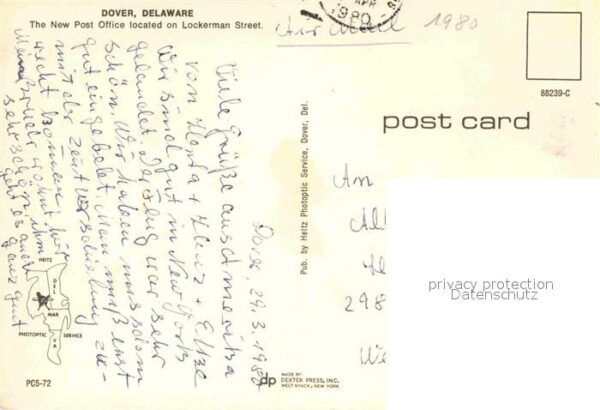 DOVER, DELAWARE
The New Post Office located on Lockerman Street.
Dover 29.3.1980
Viele Grüße aus Amerika
von Herta + Heinz + Else
Wir sind gut in New York
gelandet. Der Flug war sehr
schön. Wir haben uns schon
gut eingelebt. Man muß erst
mit der Zeitverschiebung zu-
recht kommen. Hier
Bruder wohnt hier
sehr schön, ihm
geht es auch
ganz gut
HEITZ
DEL
MAR
VA
PHOTOPTIC SERVICE
PC5-72
Pub. by Heitz Photoptic Service, Dover, Del.
dp
MADE BY
DEXTER PRESS, INC.
WEST NYACK, NEW YORK
APR
1980
Air Mail
1980
88239-C
post card
An
298
privacy protection
Datenschutz